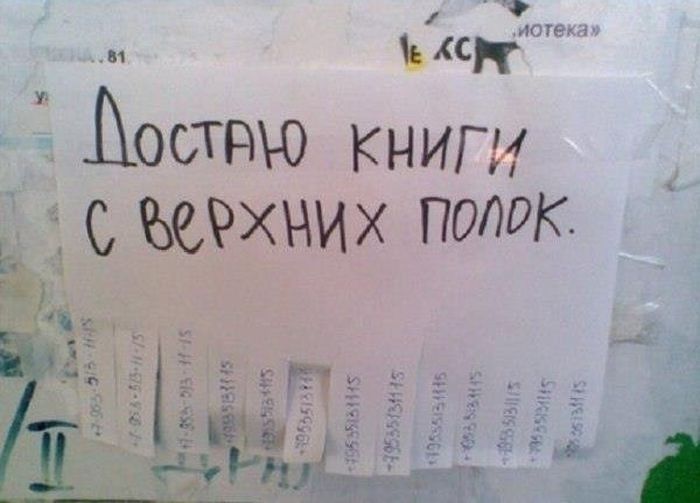 иотека»
81
Достаю книги
с верхних полок.
+7-953-513-11-15
+7-953-513-11-15
+7-953-513-11-15
+79535131115
+79535131115
+7953513111
+79535131115
+79535131115
+79535131115
+79535131115
+79535131115
+79535131115